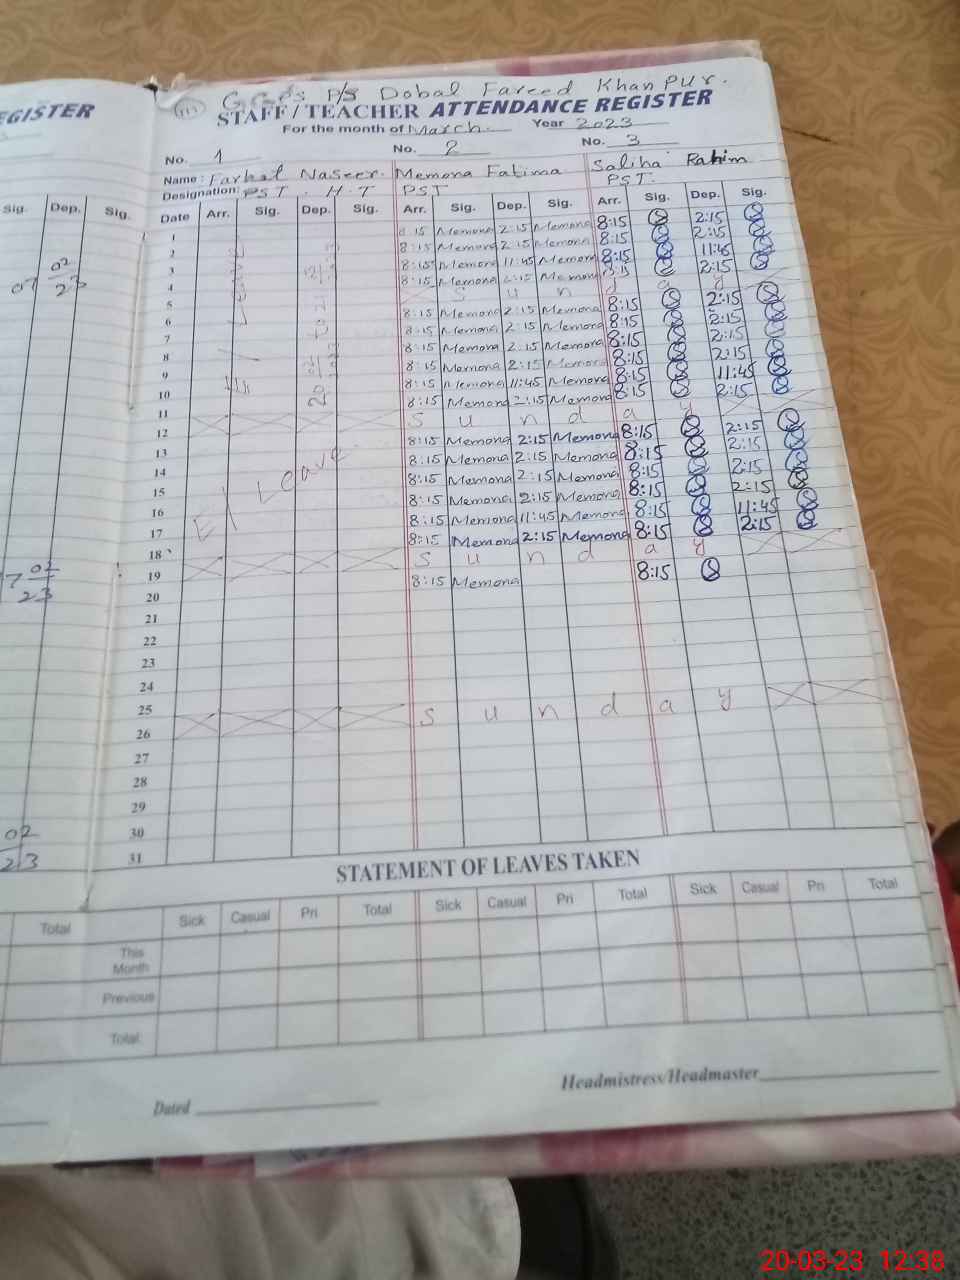 EGISTER
G.G.C.D.S P/S Dobal Fareed Khan Pur.
STAFF/TEACHER ATTENDANCE REGISTER
For the month of March. Year 2023
No. 1 No. 2 No. 3
Name: Farhat Naseer. Memona Fatima Saliha Rahim
Designation: PST. H.T PST PST.
Sig. Dep. Sig.
Date Arr. Sig. Dep. Sig. Arr. Sig. Dep. Sig. Arr. Sig. Dep. Sig.
1 8:15 Memona 2:15 Memona 8:15 2:15
2 8:15 Memona 2:15 Memona 8:15 2:15
3 8:15 Memona 11:45 Memona 8:15 11:45
4 8:15 Memona 2:15 Memona 8:15 2:15
5 S u n d a y
6 8:15 Memona 2:15 Memona 8:15 2:15
7 8:15 Memona 2:15 Memona 8:15 2:15
8 8:15 Memona 2:15 Memona 8:15 2:15
9 8:15 Memona 2:15 Memona 8:15 2:15
10 8:15 Memona 11:45 Memona 8:15 11:45
11 8:15 Memona 2:15 Memona 8:15 2:15
12 S u n d a y
13 8:15 Memona 2:15 Memona 8:15 2:15
14 8:15 Memona 2:15 Memona 8:15 2:15
15 8:15 Memona 2:15 Memona 8:15 2:15
16 8:15 Memona 2:15 Memona 8:15 2:15
17 8:15 Memona 11:45 Memona 8:15 11:45
18 8:15 Memona 2:15 Memona 8:15 2:15
19 S u n d a y
20 8:15 Memona 8:15
21
22
23
24
25
26 S u n d a y
27
28
29
30
31
E/ Leave
E/ Leave
07 02 23
7 02 23
02 23
STATEMENT OF LEAVES TAKEN
Total Sick Casual Pri Total Sick Casual Pri Total Sick Casual Pri Total
This Month
Previous
Total
Headmistress/Headmaster
Dated
20-03-23 12:38